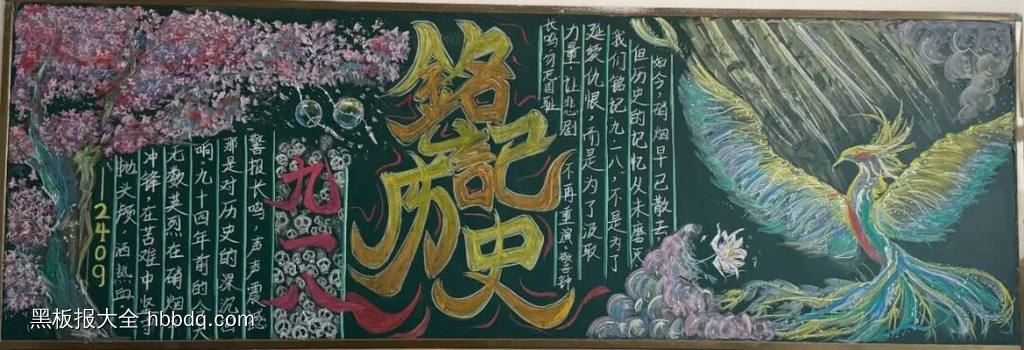 銘記
历史
九一八
如今，硝烟早已散去
但历史的记忆从未磨灭
我们铭记九一八，不是为了
延续仇恨，而是为了汲取
力量，让悲剧不再重演，警钟
长鸣，勿忘国耻
警报长鸣，声声震
那是对历史的深沉
响，九十四年前的今
无数英烈在硝烟
冲锋，在苦难中坚
抛头颅洒热血
2409
黑板报大全 hbbdq.com